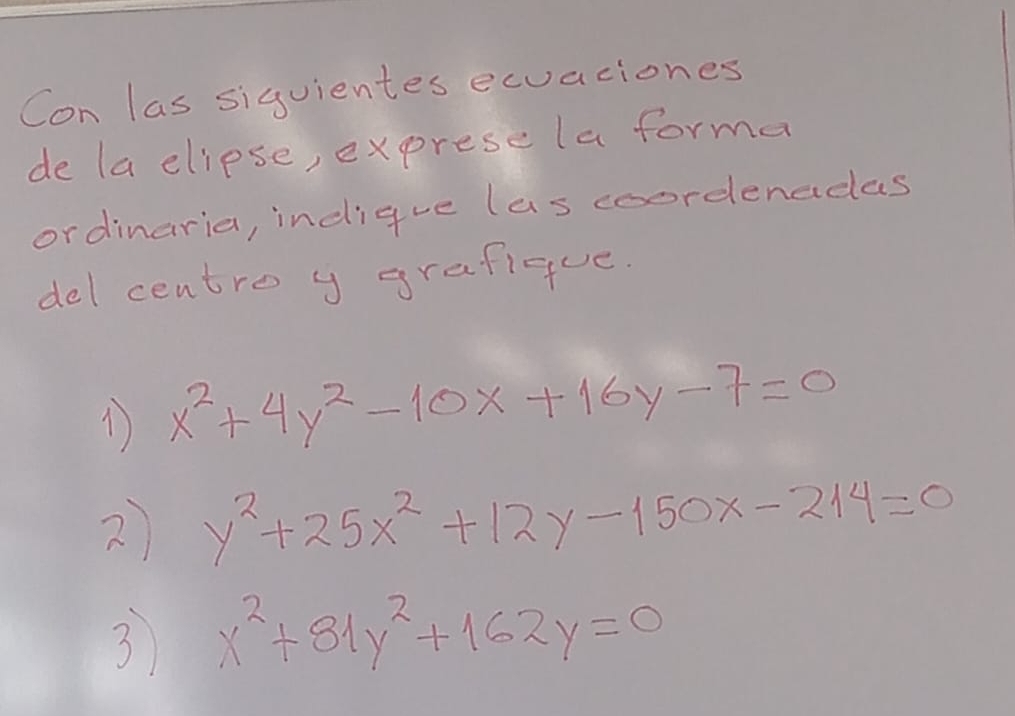 Con las siguientes ecuaciones
de la elipse, exprese la forma
ordinaria, indique las coordenadas
del centro y grafique.
1) x²+4y²-10x+16y-7=0
2) y²+25x²+12y-150x-214=0
3) x²+81y²+162y=0